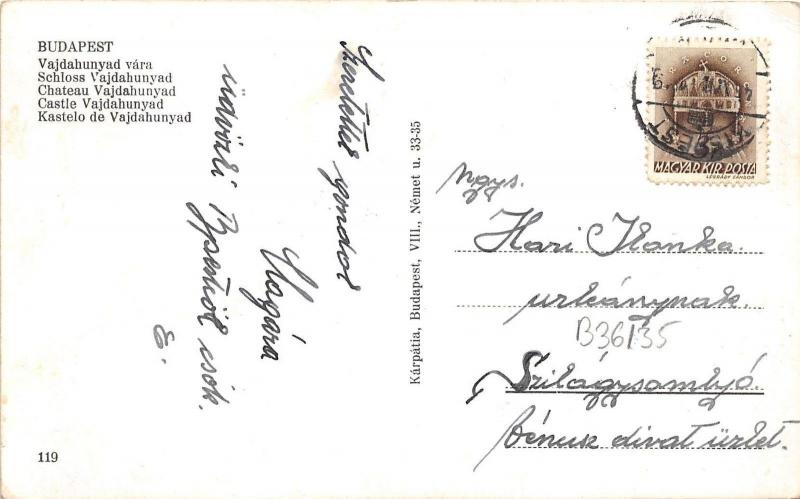 BUDAPEST
Vajdahunyad vára
Schloss Vajdahunyad
Chateau Vajdahunyad
Castle Vajdahunyad
Kastelo de Vajdahunyad
Szeretettel gondol
Magára
üdvözli
csók.
Kárpátia, Budapest, VIII., Német u. 33-35
MAGYAR KIR. POSTA
LÉGRÁDY SÁNDOR
Ngys.
Hari Ilonka.
urleánynak.
B36135
Szilágysomlyó.
Vénusz divat üzlet.
119